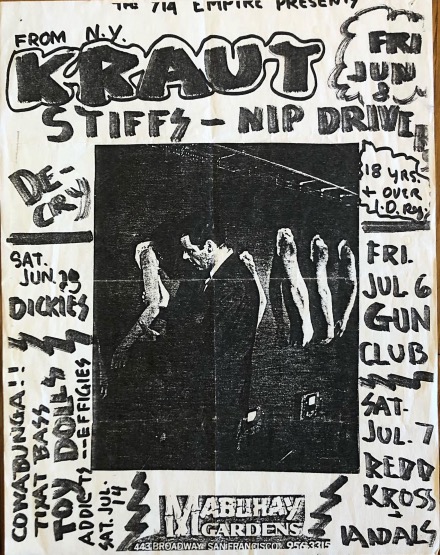 THE 714 EMPIRE PRESENTS
FROM N.Y.
KRAUT
FRI
JUN
8
STIFFS - NIP DRIVE
DE-
CRY
18 YRS.
+ OVER
I.D. Req.
SAT.
JUN.
DICKIES
COWABUNGA!!
TOY DOLLS
ADDICTS -- EFFIGIES
SAT. JUL. 14
FRI.
JUL 6
GUN
CLUB
SAT.
JUL. 7
REDD
KROSS
-
VANDALS
MABUHAY
GARDENS
443 BROADWAY SAN FRANCISCO 956-3315